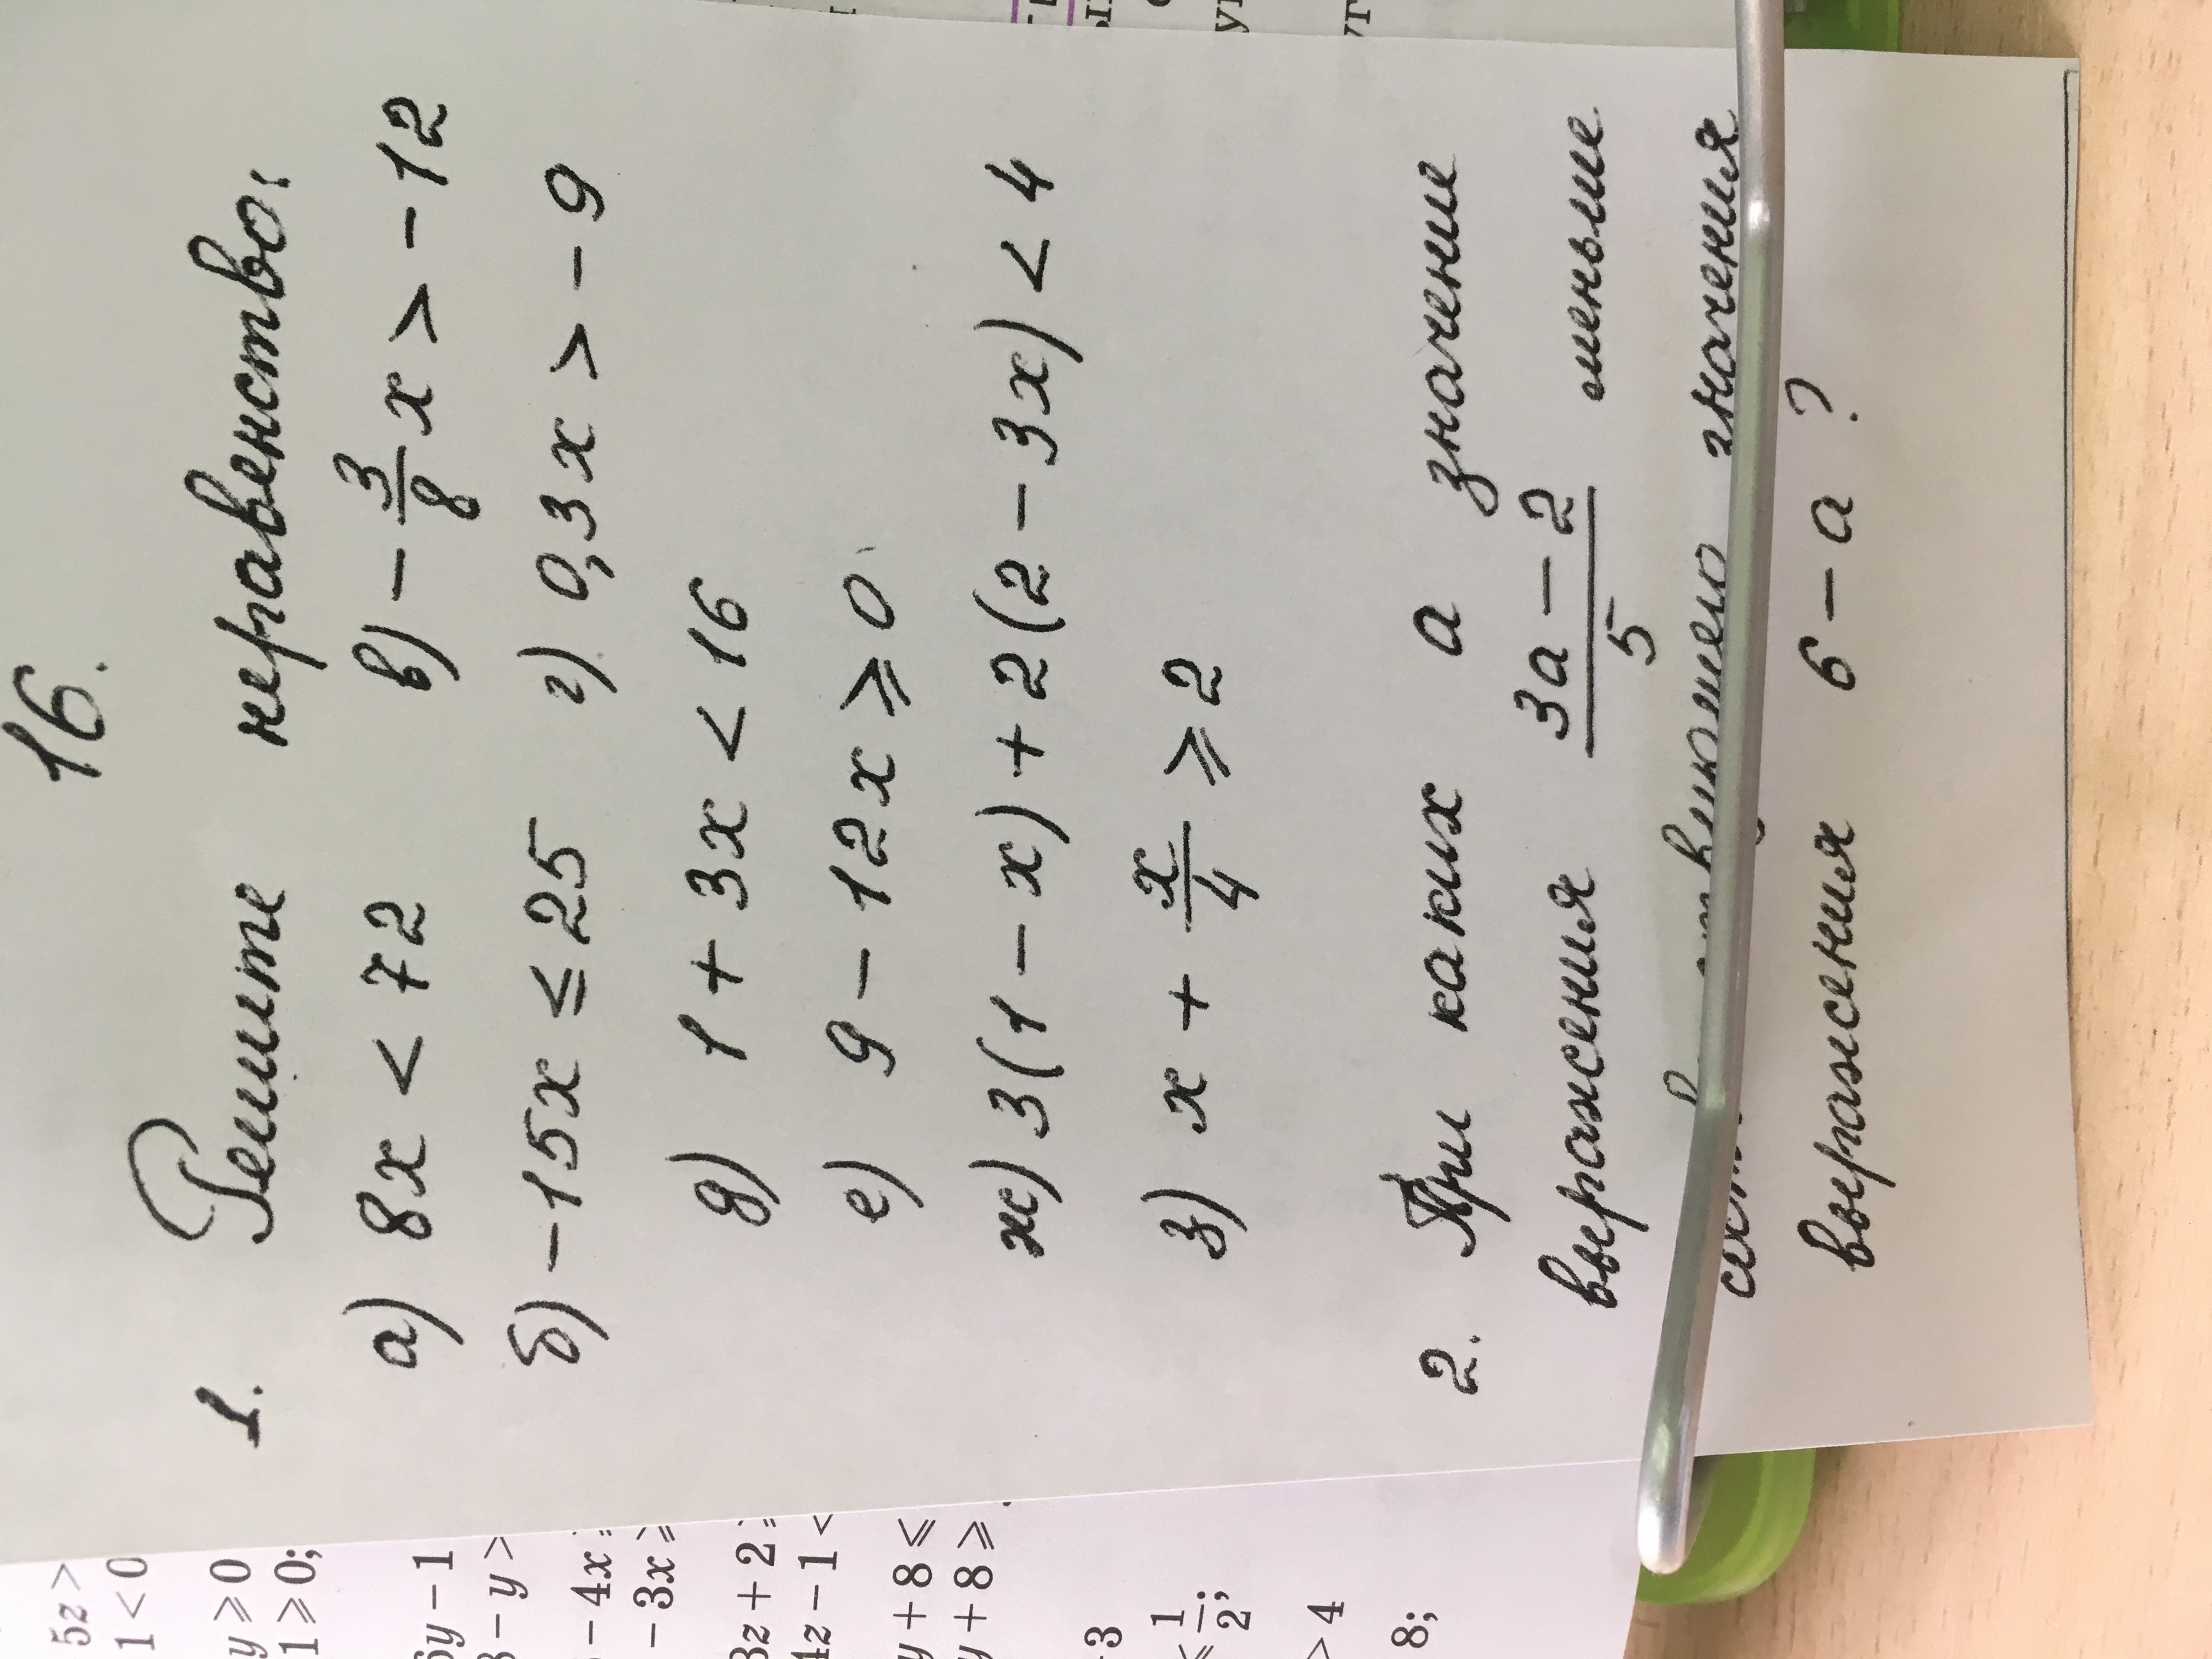 16.
1. Решите неравенство:
а) 8x < 72 в) -3/8 x > -12
б) -15x ≤ 25 г) 0,3x > -9
д) 1 + 3x < 16
е) 9 - 12x ⩾ 0
ж) 3(1 - x) + 2(2 - 3x) < 4
з) x + x/4 ⩾ 2
2. При каких а значение
выражения (3a - 2)/5 меньше
значения
выражения 6 - a ?
5z >
1 < 0
y ⩾ 0
1 ⩾ 0;
y - 1
- y >
- 4x
- 3x ⩾
3z + 2
4z - 1 <
y + 8 ⩽
y + 8 ⩾
3
⩽ 1/2;
> 4
8;